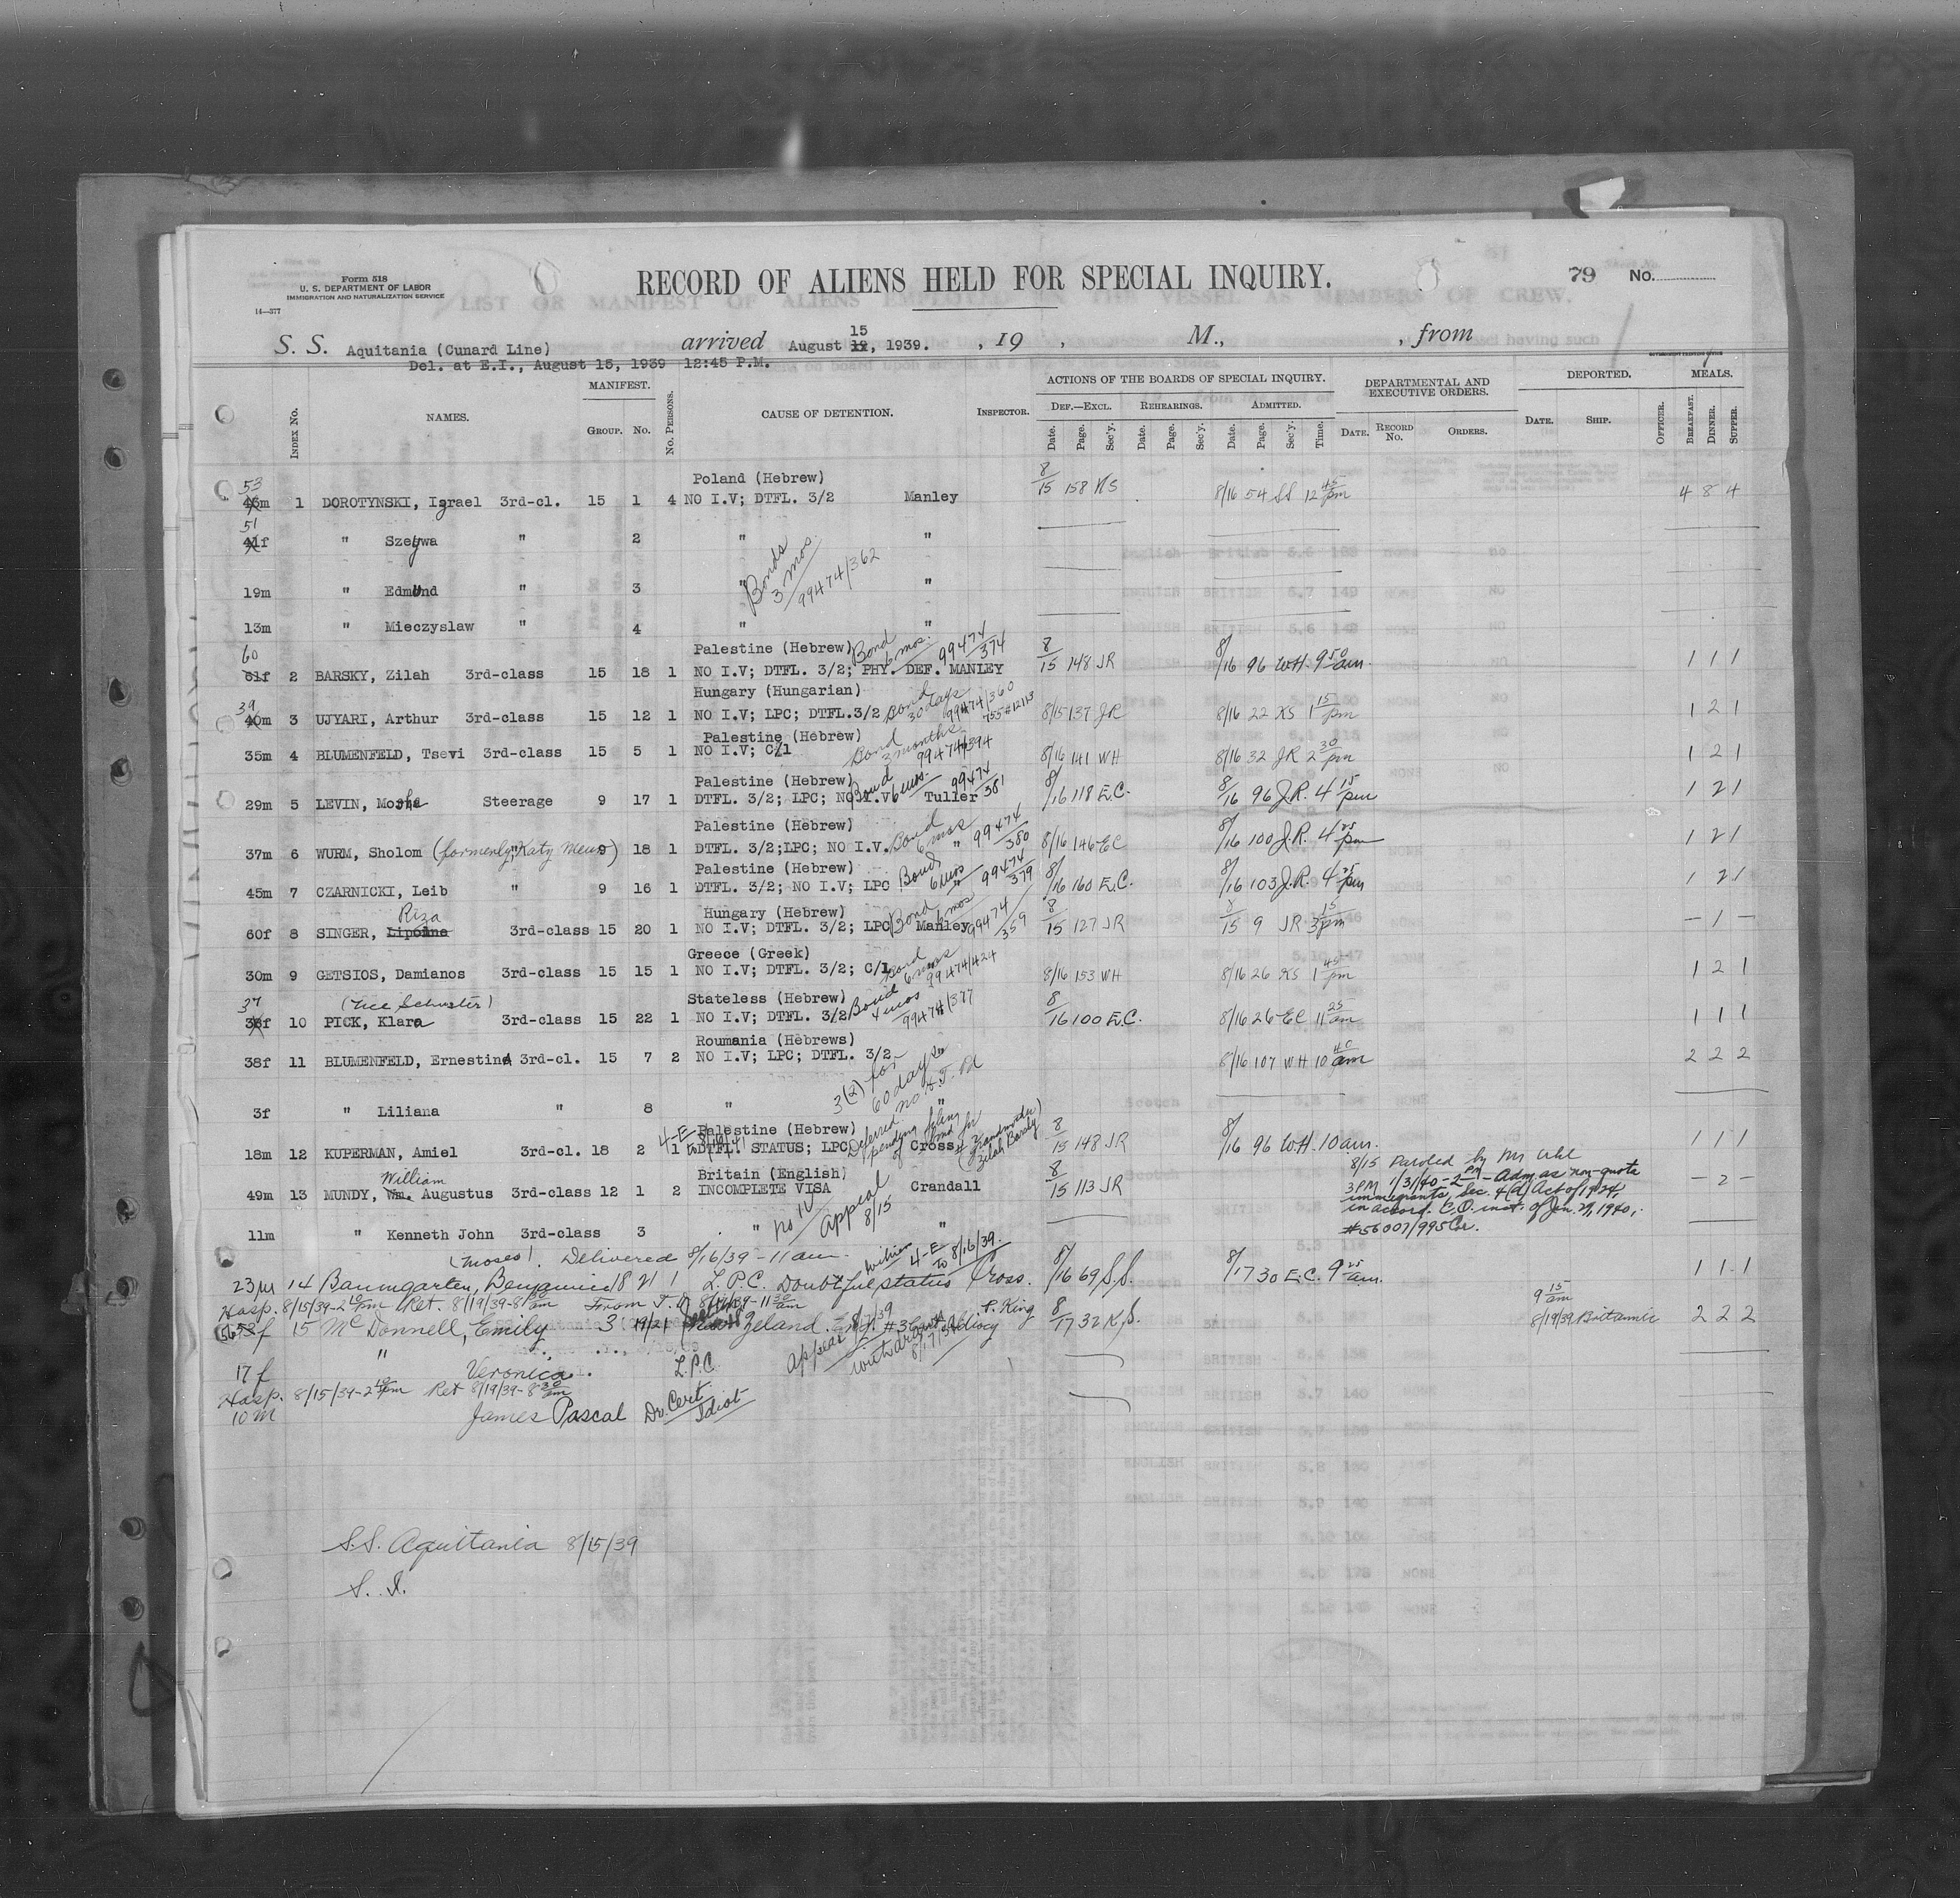 Form 518
U. S. DEPARTMENT OF LABOR
IMMIGRATION AND NATURALIZATION SERVICE
14—377
RECORD OF ALIENS HELD FOR SPECIAL INQUIRY.
79 No.
S. S. Aquitania (Cunard Line) arrived August 12 15, 1939. , 19 , M., , from
Del. at E.I., August 15, 1939 12:45 P.M.
INDEX NO. NAMES. MANIFEST. GROUP. NO. NO. PERSONS. CAUSE OF DETENTION. INSPECTOR. ACTIONS OF THE BOARDS OF SPECIAL INQUIRY. DEF.—EXCL. Date. Page. Sec'y. REHEARINGS. Date. Page. Sec'y. ADMITTED. Date. Page. Sec'y. Time. DEPARTMENTAL AND EXECUTIVE ORDERS. DATE. RECORD NO. ORDERS. DEPORTED. DATE. SHIP. OFFICER. MEALS. BREAKFAST. DINNER. SUPPER.
Poland (Hebrew)
53
46m 1 DOROTYNSKI, Izrael 3rd-cl. 15 1 4 NO I.V; DTFL. 3/2 Manley 8/15 158 KS 8/16 54 SS 12 45 pm 4 8 4
51
41f " Szejwa " 2 " "
19m " Edmund " 3 " "
Bonds 3 mos. 99474/362
13m " Mieczyslaw " 4 " "
Palestine (Hebrew) Bond 6 mos. 99474/374
60
61f 2 BARSKY, Zilah 3rd-class 15 18 1 NO I.V; DTFL. 3/2; PHY. DEF. MANLEY 8/15 148 JR 8/16 96 WH. 9 50 am. 1 1 1
Hungary (Hungarian) Bond 30 days 99474/360
39
40m 3 UJYARI, Arthur 3rd-class 15 12 1 NO I.V; LPC; DTFL.3/2 8/15 137 JR 8/16 22 KS 1 15 pm 1 2 1
Palestine (Hebrew) Bond 3 months 99474/394
35m 4 BLUMENFELD, Tsevi 3rd-class 15 5 1 NO I.V; C/1 8/16 141 WH 8/16 32 JR 2 30 pm 1 2 1
Palestine (Hebrew) Bond 6 mos. 99474/381
29m 5 LEVIN, Moshe Steerage 9 17 1 DTFL. 3/2; LPC; NO I.V. Tuller 8/16 118 E.C. 8/16 96 J.R. 4 15 pm 1 2 1
Palestine (Hebrew) Bond 6 mos 99474/380
37m 6 WURM, Sholom (formerly Katz " 9 18 1 DTFL. 3/2;LPC; NO I.V. " 8/16 146 EC 8/16 100 J.R. 4 25 pm 1 2 1
Palestine (Hebrew) Bond 6 mos 99474/379
45m 7 CZARNICKI, Leib " 9 16 1 DTFL. 3/2; NO I.V; LPC " 8/16 160 E.C. 8/16 103 J.R. 4 35 pm 1 2 1
Riza Hungary (Hebrew) Bond 6 mos 99474/359
60f 8 SINGER, 3rd-class 15 20 1 NO I.V; DTFL. 3/2; LPC Manley 8/15 127 JR 8/15 9 JR 3 15 pm — 1 —
Greece (Greek) Bond 6 mos 99474/424
30m 9 GETSIOS, Damianos 3rd-class 15 15 1 NO I.V; DTFL. 3/2; C/1 8/16 153 WH 8/16 26 KS 1 45 pm 1 2 1
(nee Schuster) Stateless (Hebrew) Bond 4 mos 99474/377
37
38f 10 PICK, Klara 3rd-class 15 22 1 NO I.V; DTFL. 3/2 8/16 100 E.C. 8/16 26 EC 11 25 am 1 1 1
Roumania (Hebrews)
38f 11 BLUMENFELD, Ernestina 3rd-cl. 15 7 2 NO I.V; LPC; DTFL. 3/2 8/16 107 WH 10 40 am 2 2 2
3(2) for 60 days no H.T. Pd
3f " Liliana " 8 " "
Palestine (Hebrew) Deferred pending filing of bond for grandmother Zilah Barsky)
18m 12 KUPERMAN, Amiel 3rd-cl. 18 2 1 DTFL. STATUS; LPC Cross 8/15 148 JR 8/16 96 WH. 10 am. 1 1 1
William Britain (English)
49m 13 MUNDY, Wm. Augustus 3rd-class 12 1 2 INCOMPLETE VISA Crandall 8/15 113 JR — 2 —
8/15 Paroled by Mr Uhl
3 PM 1/31/40 - 2 PM - Adm. as non-quota
immigrants, Sec. 4(d) Act of 1924,
in accord. C.O. inst. of Jan. 29, 1940,
#56007/995 Cr.
11m " Kenneth John 3rd-class 3 " no IV Appeal 8/15 "
(Moses). Delivered 8/16/39 - 11 am. 4-E to 8/16/39.
23m 14 Baumgarten, Benjamin 18 21 1 L.P.C. Doubtful status Cross. 8/16 69 S.S. 8/17 30 E.C. 9 25 am. 1 1 1
Hosp. 8/15/39-2 10 pm Ret. 8/19/39-8 30 am
56 53f 15 McDonnell, Emily 3 19/21 New Zeland P. King 8/17 32 K.S. 9 15 am 8/19/39 Britannic 2 2 2
17f " Veronica. L.P.C.
Hosp. 8/15/39-2 10 pm Ret 8/19/39-8 30 am
10m James Pascal Dr. Cert. Idiot
S.S. Aquitania 8/15/39
S. I.